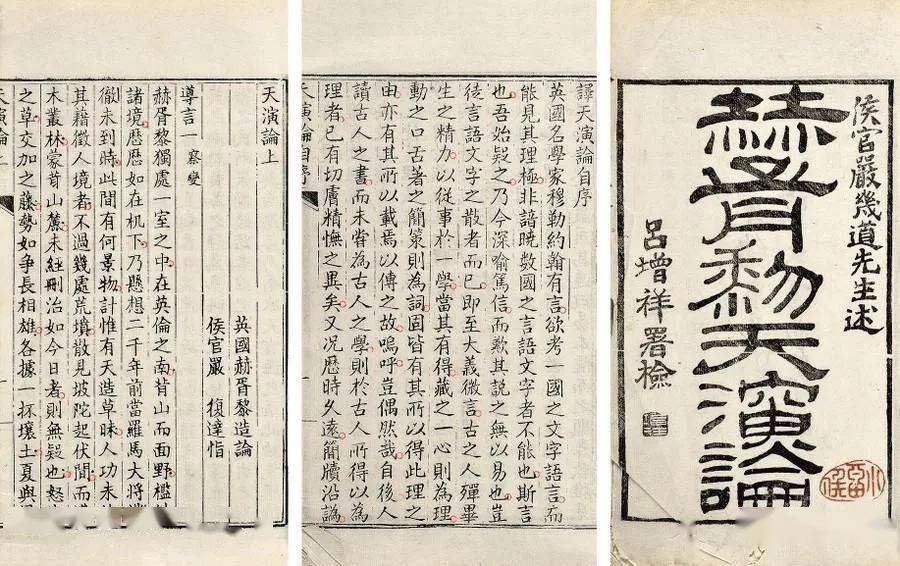 侯官嚴幾道先生述
赫胥黎天演論
呂增祥署檢
譯天演論自序
英國名學家穆勒約翰有言欲考一國之文字語言而
能見其理極非諳曉數國之言語文字者不能也斯言
也吾始疑之乃今深喻篤信而歎其說之無以易也豈
徒言語文字之散者而已即至大義微言古之人殫畢
生之精力以從事於一學當其有得藏之一心則為理
動之口舌著之簡策則為詞固皆有其所以得此理之
由亦有其所以載焉以傳之故嗚呼豈偶然哉自後人
讀古人之書而未嘗為古人之學則於古人所得以為
理者已有切膚精憮之異矣又況歷時久遠簡牘沿譌
天演論自序
天演論上
英國赫胥黎造論
侯官嚴 復達恉
導言一 察變
赫胥黎獨處一室之中在英倫之南背山而面野檻
諸境歷歷如在机下乃懸想二千年前當羅馬大將
徹未到時此間有何景物計惟有天造草昧人功未
其藉徵人境者不過幾處荒墳散見坡陀起伏間而
木叢林蒙茸山麓未經刪治如今日者則無疑也怒
之草交加之藤勢如爭長相雄各據一抔壤土夏與
天演論上